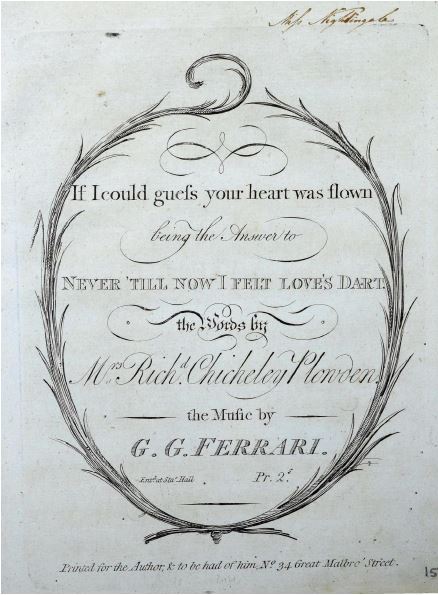 Miss Nightingale
If I could guess your heart was flown
being the Answer to
NEVER 'TILL NOW I FELT LOVE'S DART.
the Words by
Mrs. Richd. Chicheley Plowden.
the Music by
G. G. FERRARI.
Entd. at Stats. Hall Pr. 2s.
Printed for the Author, & to be had of him, No. 34 Great Malbro' Street.
15